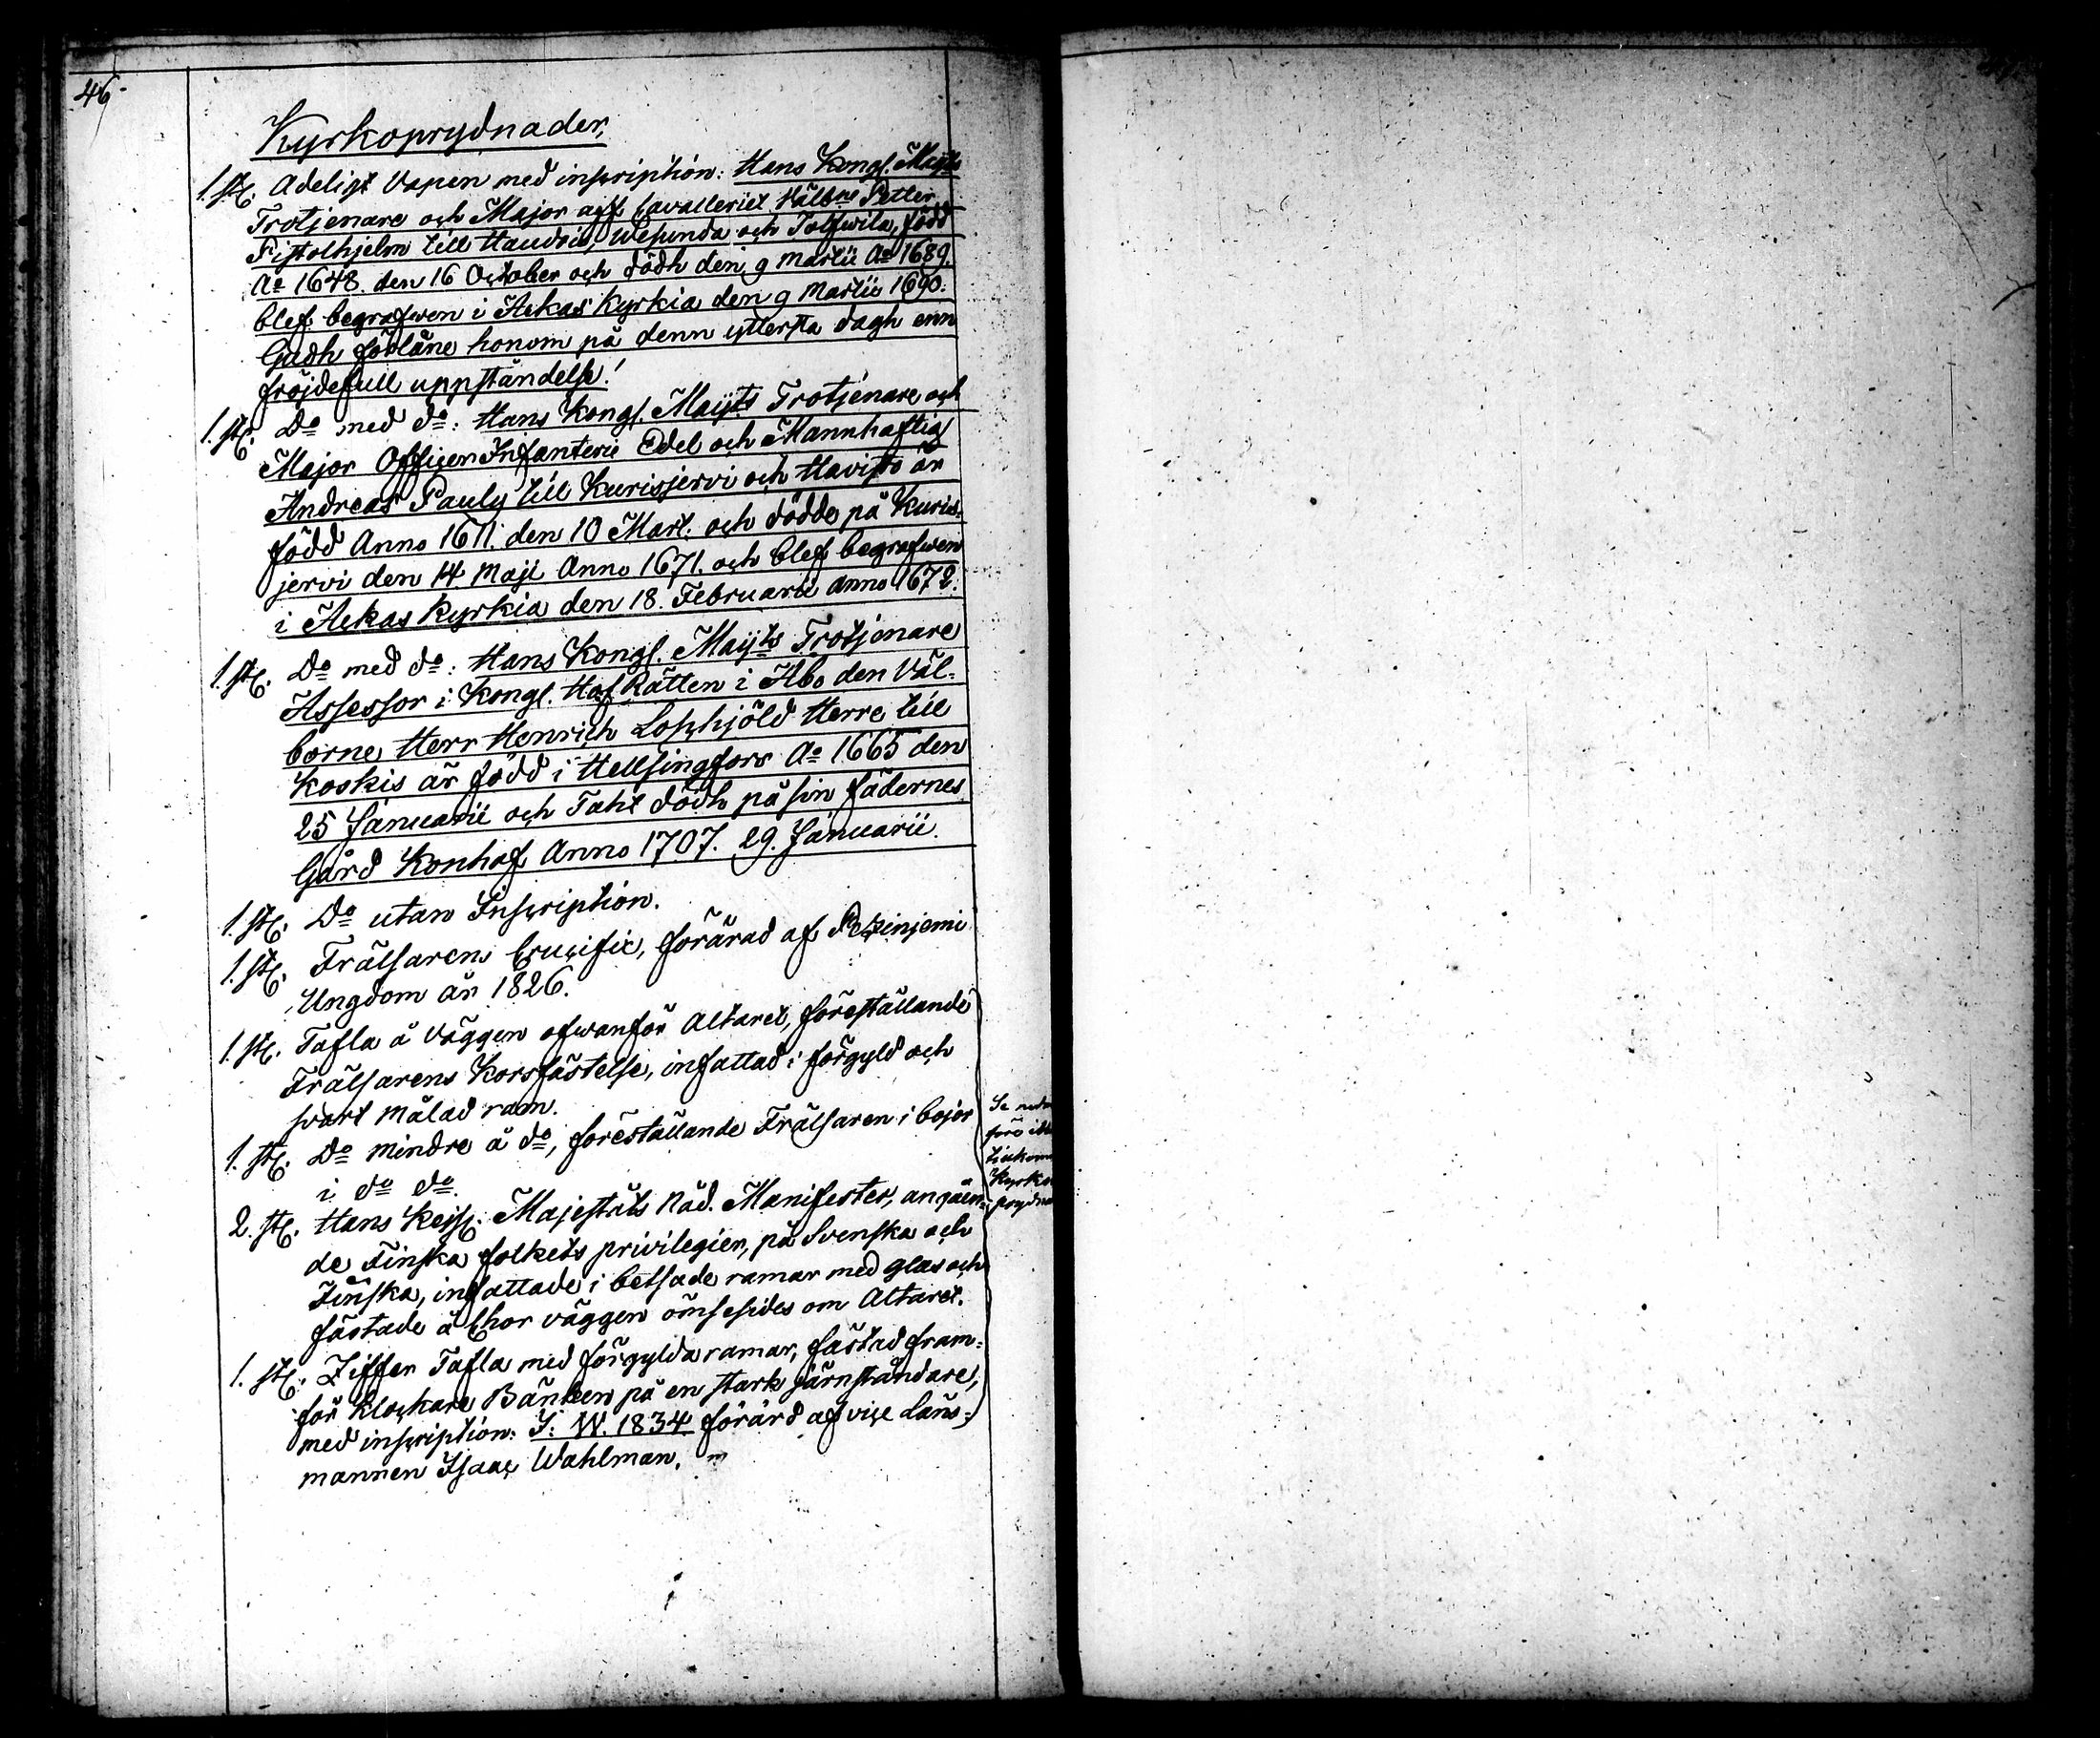 46.
Kyrkoprydnader,
1. st. Adeligt Vapen med inscription: Hans Kongl. Maijts
Trotjenare och Major aff Cavalleriet Välb:ne Petter
Pistolhjelm till Haudis, Wesunda och Tolfwila, född
A:o 1648. den 16 October och dödh den 9 Martii A:o 1689.
blef begrafwen i Ackas Kyrkia den 9 Martii 1690.
Gudh förläne honom på denn yttersta dagh enn
fröjdefull uppståndelse!
1. st. D:o med d:o: Hans Kongl. Maijts Trotjenare och
Major Offwer Infanterie Edel och Mannhaftig
Andreas Pauly till Kurisjervi och Havisto är
född Anno 1611. den 10 Mart. och dödde på Kuris-
jervi den 14 Maji Anno 1671. och blef begrafwen
i Ackas Kyrkia den 18. Februarii anno 1672.
1. st. D:o med d:o: Hans Kongl. Maijts Trotjenare
Assessor i Kongl. Hof Rätten i Åbo den Väl-
borne Herr Henrich Loschjöld Herre till
Koskis är född i Hellsingfors A:o 1665 den
25 Januarii och Taht dödh på sin fädernes
Gård Konhof Anno 1707. 29. Januarii.
1. st. D:o utan Inscription.
1. st. Frälsarens Crucifix, förärad af
Ungdom år 1826.
1. st. Tafla å Väggen ofwanför Altaret, föreställande
Frälsarens Korsfästelse, infattad i förgyld och
svart målad ram.
1. st. D:o mindre å d:o, föreställande Frälsaren i bojor
i d:o d:o.
2. st. Hans Kejs. Majestäts Nåd. Manifester, angåen-
de Finska folkets privilegier, på Svenska och
Finska, infattade i betsade ramar med glas och
fästade å Chor väggen ömsesides om Altaret.
1. st. Ziffer Tafla med förgylda ramar, fästad fram-
för Klockare Bänken på en stark järnståndare,
med inscription: I. W. 1834 förärd af vice Läns-
mannen Isaac Wahlman.
Se
Kyrko
prydna